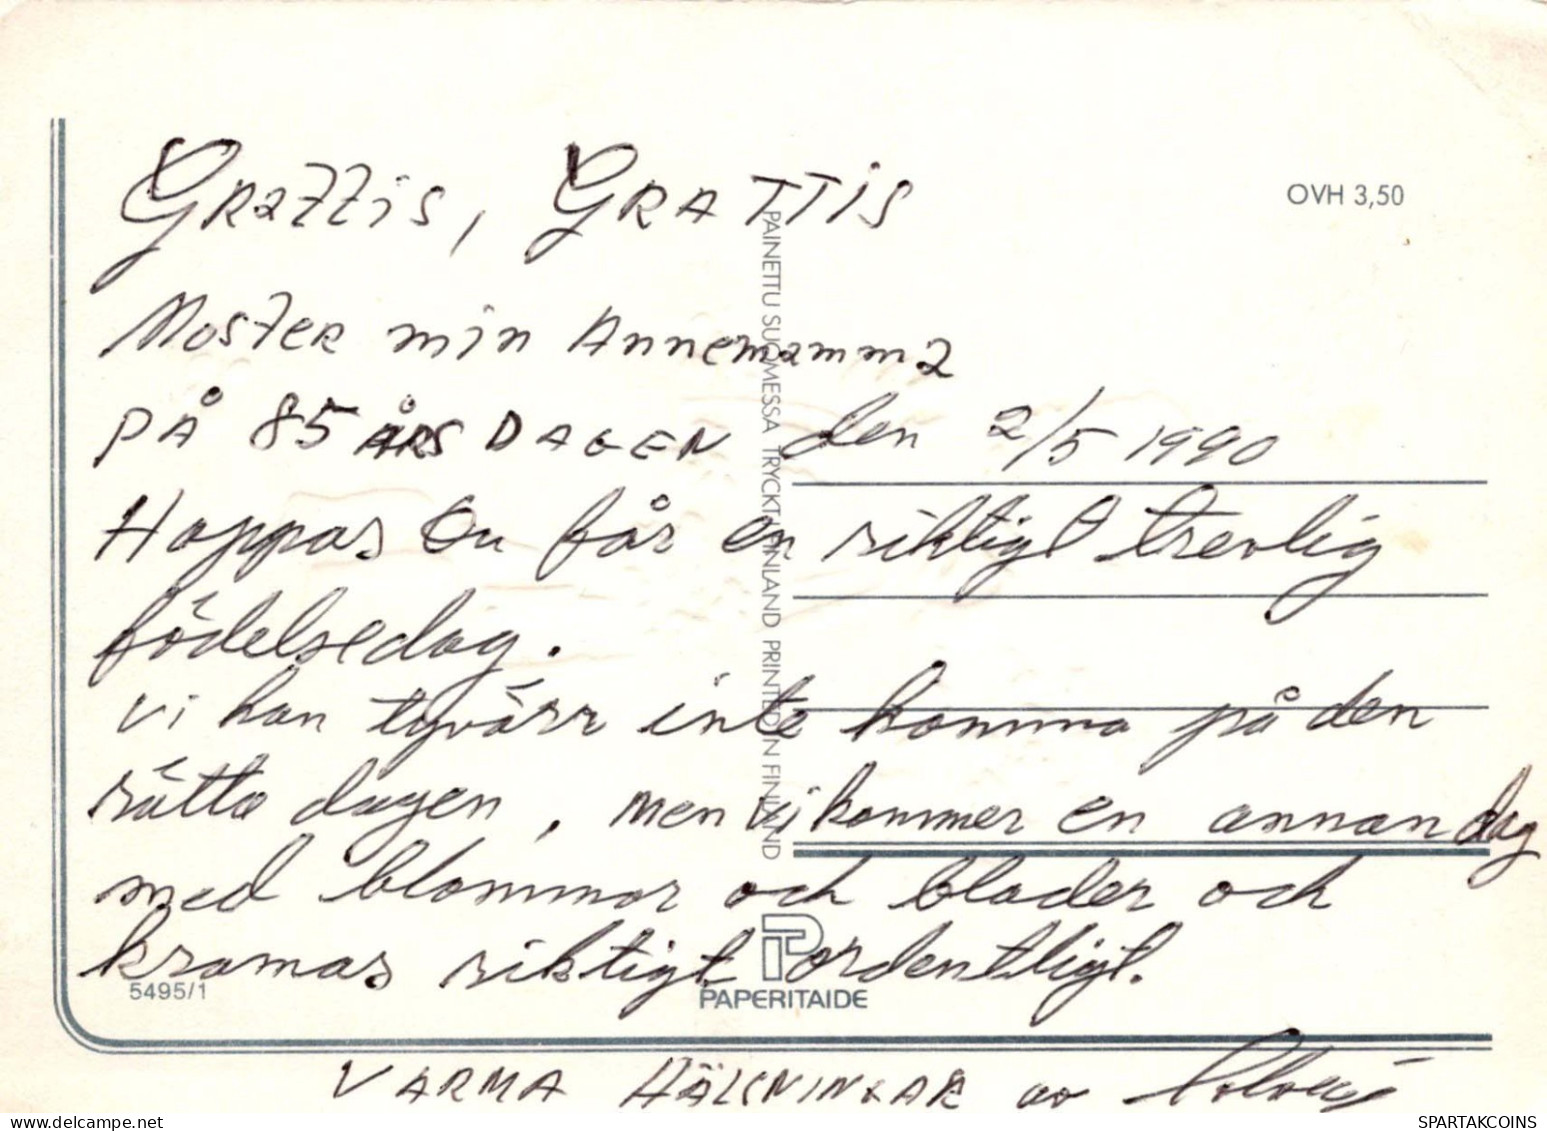 Grattis, GRATTIS
OVH 3,50
Moster min Annemamma
PÅ 85 ÅRS DAGEN den 2/5 1990
Hoppas Du får en riktigt trevlig
födelsedag.
vi kan tyvärr inte komma på den
rätta dagen, men vi kommer en annan dag
med blommor och blader och
kramas riktigt ordentligt.
5495/1
PAPERITAIDE
VARMA HÄLSNINGAR av
PAINETTU SUOMESSA TRYCKT I FINLAND PRINTED IN FINLAND
SPARTAKCOINS